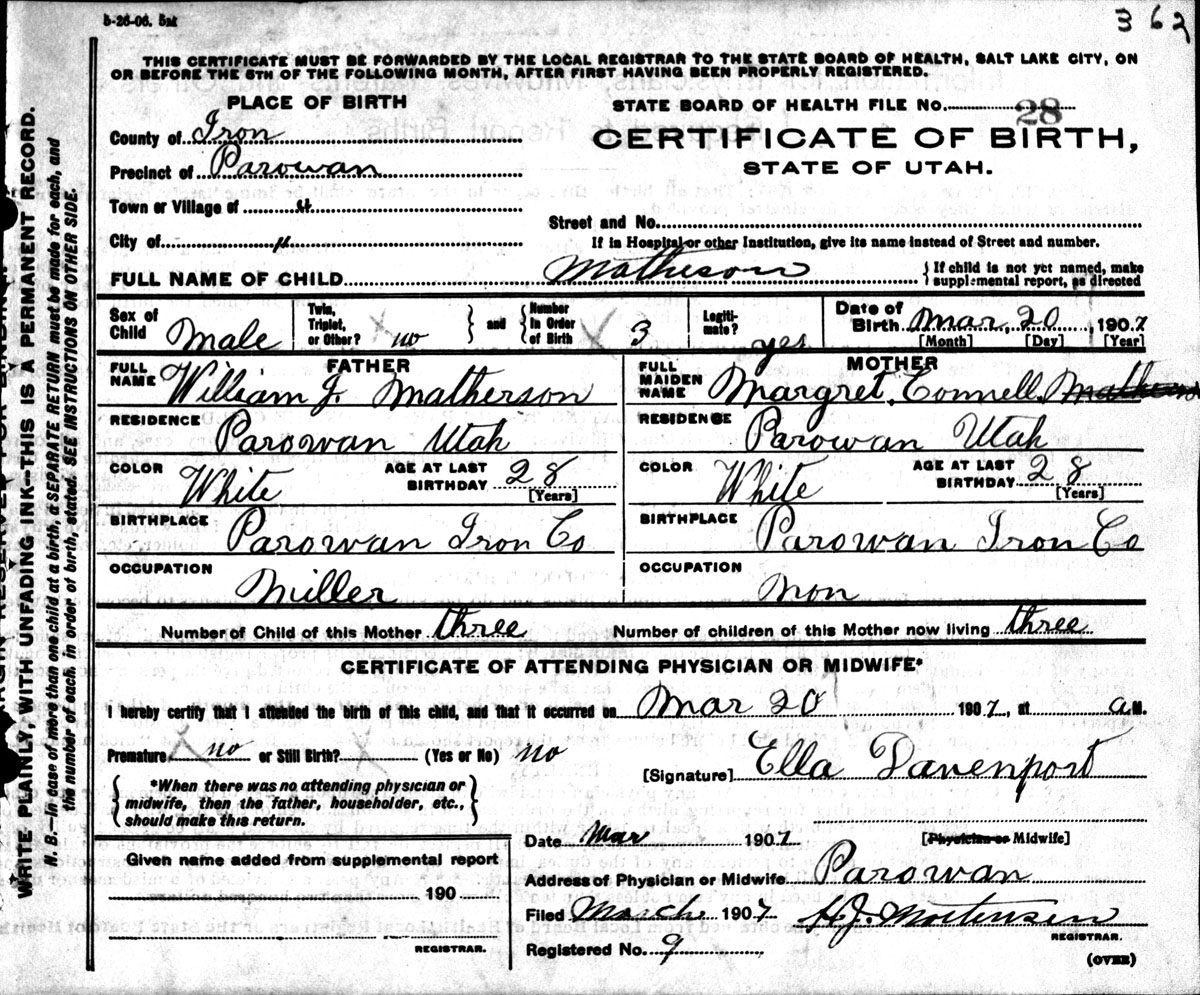 5-26-06. 5M
3 62
THIS CERTIFICATE MUST BE FORWARDED BY THE LOCAL REGISTRAR TO THE STATE BOARD OF HEALTH, SALT LAKE CITY, ON
OR BEFORE THE 5TH OF THE FOLLOWING MONTH, AFTER FIRST HAVING BEEN PROPERLY REGISTERED.
PLACE OF BIRTH
County of Iron
Precinct of Parowan
Town or Village of "
City of "
STATE BOARD OF HEALTH FILE No. 28
CERTIFICATE OF BIRTH,
STATE OF UTAH.
Street and No.
If in Hospital or other Institution, give its name instead of Street and number.
FULL NAME OF CHILD Matheson { If child is not yet named, make supplemental report, as directed
Sex of Child Male
Twin, Triplet, or Other? no } and { Number in Order of Birth 3
Legitimate? yes
Date of Birth Mar. 20, 1907
[Month] [Day] [Year]
FATHER
FULL NAME William J. Matherson
RESIDENCE Parowan Utah
COLOR White AGE AT LAST BIRTHDAY 28 [Years]
BIRTHPLACE Parowan Iron Co
OCCUPATION Miller
MOTHER
FULL MAIDEN NAME Margret Connell
RESIDENCE Parowan Utah
COLOR White AGE AT LAST BIRTHDAY 28 [Years]
BIRTHPLACE Parowan Iron Co
OCCUPATION Non
Number of Child of this Mother three Number of children of this Mother now living three
CERTIFICATE OF ATTENDING PHYSICIAN OR MIDWIFE*
I hereby certify that I attended the birth of this child, and that it occurred on Mar 20 1907, at a M.
Premature no or Still Birth? (Yes or No) no
{ *When there was no attending physician or midwife, then the father, householder, etc., should make this return. }
[Signature] Ella Davenport
[Physician or Midwife]
Date Mar 1907
Address of Physician or Midwife Parowan
Filed March 1907 H.J. Mortensen
REGISTRAR.
Registered No. 9
(OVER)
Given name added from supplemental report
190
REGISTRAR.
WRITE PLAINLY, WITH UNFADING INK—THIS IS A PERMANENT RECORD.
N. B.—In case of more than one child at a birth, a SEPARATE RETURN must be made for each, and
the number of each, in order of birth, stated. SEE INSTRUCTIONS ON OTHER SIDE.